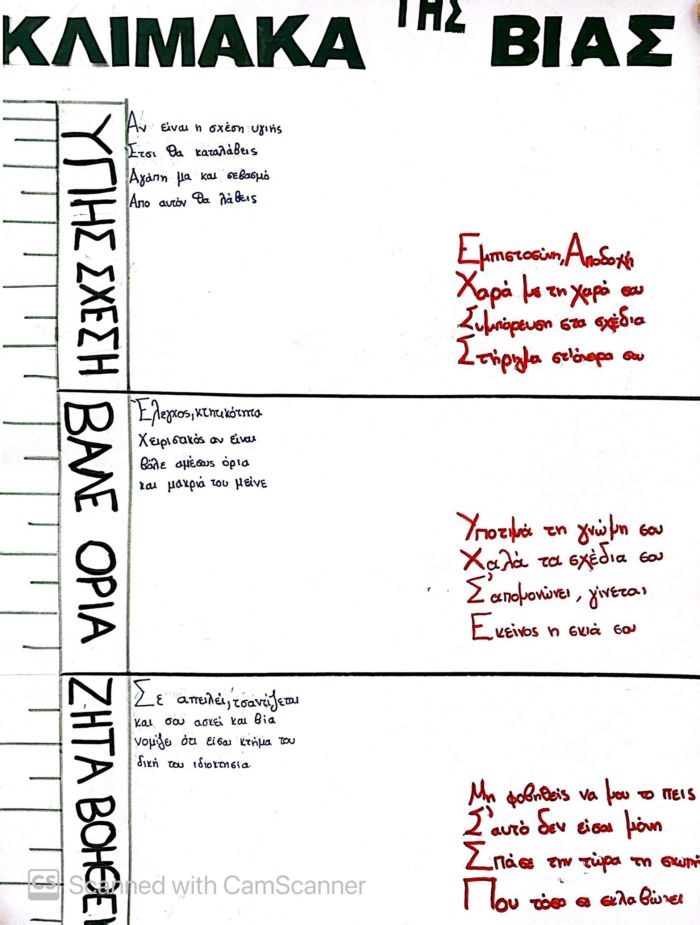 ΚΛΙΜΑΚΑ ΤΗΣ ΒΙΑΣ
ΥΓΙΗΣ ΣΧΕΣΗ
Αν είναι η σχέση υγιής
Έτσι θα καταλάβεις
Αγάπη μα και σεβασμό
Απο αυτόν θα λάβεις
Εμπιστοσύνη, Αποδοχή
Χαρά με τη χαρά σου
Συμπόρευση στα σχέδια
Στήριγμα στ'όνειρα σου
ΒΑΛΕ ΟΡΙΑ
Έλεγχος, κτητικότητα
Χειριστικός αν είναι
βάλε αμέσως όρια
και μακριά του μείνε
Υποτιμά τη γνώμη σου
Χαλά τα σχέδια σου
Σ'απομονώνει, γίνεται
Εκείνος η σκιά σου
ΖΗΤΑ ΒΟΗΘΕΙ
Σε απειλεί, τσαντίζεται
και σου ασκεί και βία
νομίζει ότι είσαι κτήμα του
δική του ιδιοκτησία
Μη φοβηθείς να μου το πεις
Σ'αυτό δεν είσαι μόνη
Σπάσε την τώρα τη σιωπή
Που τόσο σε σκλαβώνει
CS Scanned with CamScanner